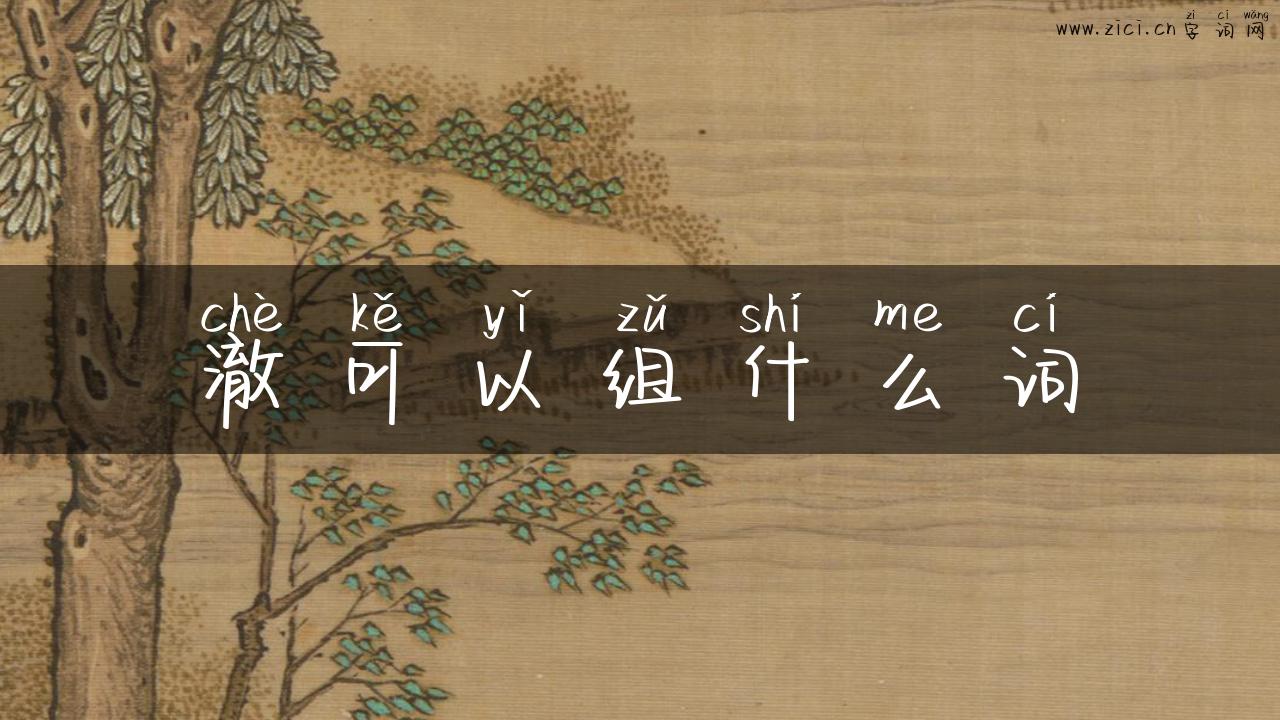 zì cí wǎng
www.zici.cn 字 词 网
chè kě yǐ zǔ shí me cí
澈 可 以 组 什 么 词